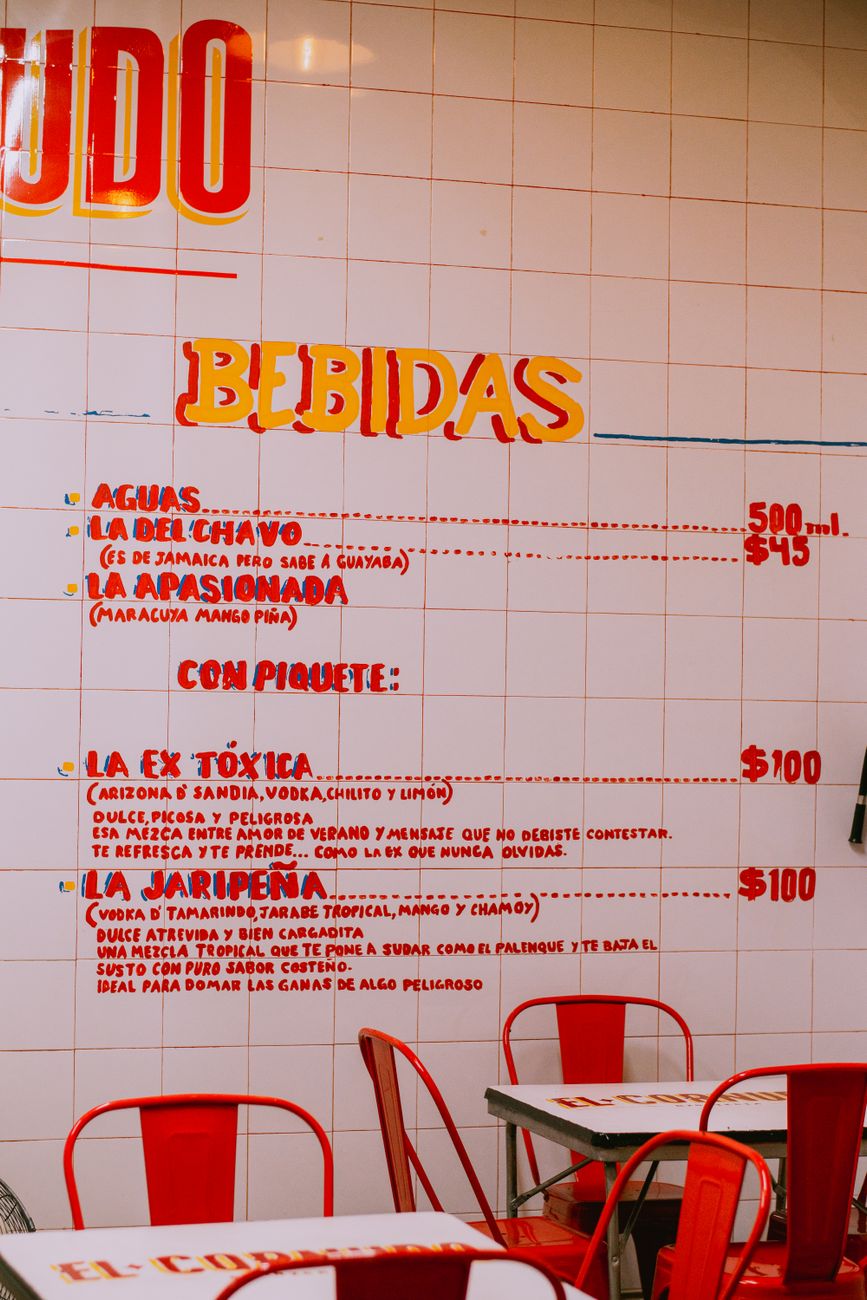 UDO
BEBIDAS
AGUAS 500 ml.
LA DEL CHAVO $45
(ES DE JAMAICA PERO SABE A GUAYABA)
LA APASIONADA
(MARACUYA MANGO PIÑA)
CON PIQUETE:
LA EX TÓXICA $100
(ARIZONA D' SANDIA, VODKA, CHILITO Y LIMÓN)
DULCE, PICOSA Y PELIGROSA
ESA MEZCA ENTRE AMOR DE VERANO Y MENSAJE QUE NO DEBISTE CONTESTAR.
TE REFRESCA Y TE PRENDE... COMO LA EX QUE NUNCA OLVIDAS.
LA JARIPEÑA $100
(VODKA D' TAMARINDO, JARABE TROPICAL, MANGO Y CHAMOY)
DULCE ATREVIDA Y BIEN CARGADITA
UNA MEZCLA TROPICAL QUE TE PONE A SUDAR COMO EL PALENQUE Y TE BAJA EL
SUSTO CON PURO SABOR COSTEÑO.
IDEAL PARA DOMAR LAS GANAS DE ALGO PELIGROSO
EL CORNUDO
EL CORNUDO